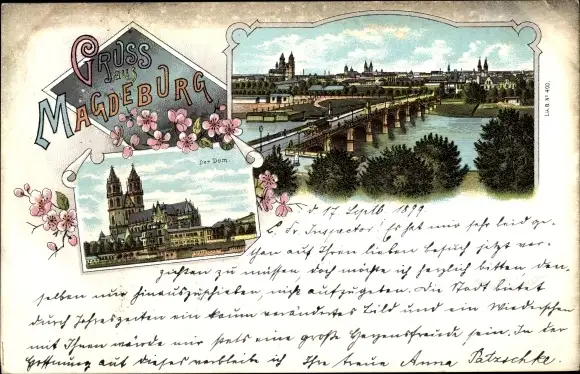 Gruss
aus
Magdeburg
Der Dom.
L.i.B. No 402.
d 17. Septb. 1899
L. Fr. Inspector! Es hat mir sehr leid ge-
than auf Ihren lieben Besuch jetzt ver-
zichten zu müssen, doch möchte ich herzlich bitten, den-
selben nur hinauszuschieben, nicht aufzugeben. Die Stadt bietet
durch Jahreszeiten ein kaum verändertes Bild und ein Wiedersehen
mit Ihnen würde mir stets eine große Herzensfreude sein. In der
Hoffnung auf dieses verbleibe ich Ihre treue Anna Patzschke.